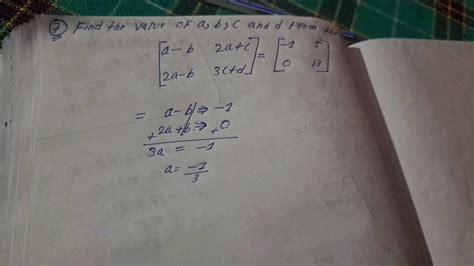 7 Find the value of a, b, c and d from the
[a-b 2a+c] = [-1 5]
[2a-b 3c+d] [0 13]
= a-b ⇒ -1
+2a+b ⇒ +0
3a = -1
a = -1/3